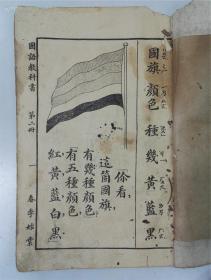 國旗顏色種幾黃藍黑
你看,
這箇國旗,
有幾種顏色,
有五種顏色,
紅、黃、藍、白、黑,
國語教科書
第二册
一
春季始業